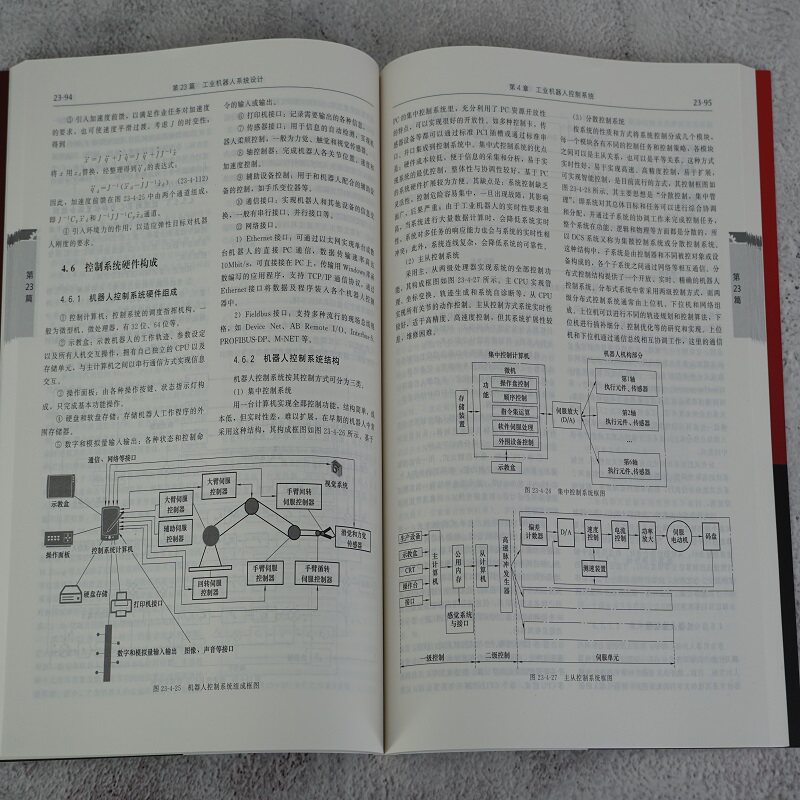 23-94
第23篇 工业机器人系统设计
③ 引入加速度前馈，以满足作业任务对加速度
的要求，也可使速度平滑过渡。考虑 J 的时变性，
得到
将
替换，经整理得到
的表达式。
(23-4-112)
因此，加速度前馈在图 23-4-25 中由两个通道组成，
通道。
④ 引入环境力的作用，以适应弹性目标对机器
人刚度的要求。
4.6 控制系统硬件构成
4.6.1 机器人控制系统硬件组成
① 控制计算机：控制系统的调度指挥机构。一
般为微型机、微处理器，有 32 位、64 位等。
② 示教盒：示教机器人的工作轨迹、参数设定
以及所有人机交互操作，拥有自己独立的 CPU 以及
存储单元，与主计算机之间以串行通信方式实现信息
交互。
③ 操作面板：由各种操作按键、状态指示灯构
成，只完成基本功能操作。
④ 硬盘和软盘存储：存储机器人工作程序的外
围存储器。
⑤ 数字和模拟量输入输出：各种状态和控制命
令的输入或输出。
⑥ 打印机接口：记录需要输出的各种信息。
⑦ 传感器接口：用于信息的自动检测，实现机
器人柔顺控制，一般为力觉、触觉和视觉传感器。
⑧ 轴控制器：完成机器人各关节位置、速度和
加速度控制。
⑨ 辅助设备控制：用于和机器人配合的辅助设
备的控制，如手爪变位器等。
⑩ 通信接口：实现机器人和其他设备的信息交
换，一般有串行接口、并行接口等。
网络接口。
1) Ethernet 接口：可通过以太网实现单台或数
台机器人的直接 PC 通信，数据传输速率高达
10Mbit/s，可直接在 PC 上，传输用 Windows 库函
数编写的应用程序，支持 TCP/IP 通信协议，通过
Ethernet 接口将数据及程序装入各个机器人控制
器中。
2) Fieldbus 接口：支持多种流行的现场总线规
格，如 Device Net、AB Remote I/O、Interbus-S、
PROFIBUS-DP、M-NET 等。
4.6.2 机器人控制系统结构
机器人控制系统按其控制方式可分为三类。
(1) 集中控制系统
用一台计算机实现全部控制功能，结构简单，成
本低，但实时性差，难以扩展，在早期的机器人中常
采用这种结构，其构成框图如图 23-4-26 所示。基于
第23篇
通信、网络等接口
示教盒
操作面板
控制系统计算机
硬盘存储
打印机接口
数字和模拟量输入输出
图像、声音等接口
大臂伺服控制器
大臂伺服控制器
辅助伺服控制器
回转伺服控制器
手臂回转伺服控制器
手臂伺服控制器
手臂俯转伺服控制器
视觉系统
滑觉和力觉传感器
图 23-4-25 机器人控制系统组成框图
第4章 工业机器人控制系统
23-95
PC 的集中控制系统里，充分利用了 PC 资源开放性
的特点，可以实现很好的开放性。如多种控制卡，传
感器设备等都可以通过标准 PCI 插槽或通过标准串
口、并口集成到控制系统中。集中式控制系统的优点
是：硬件成本较低，便于信息的采集和分析，易于实
现系统的最优控制，整体性与协调性较好，基于 PC
的系统硬件扩展较为方便。其缺点是：系统控制缺乏
灵活性，控制危险容易集中，一旦出现故障，其影响
面广，后果严重；由于工业机器人的实时性要求很
高，当系统进行大量数据计算时，会降低系统实时
性，系统对多任务的响应能力也会与系统的实时性相
冲突；此外，系统连线复杂，会降低系统的可靠性。
(2) 主从控制系统
采用主、从两级处理器实现系统的全部控制功
能，其构成框图如图 23-4-27 所示。主 CPU 实现管
理、坐标变换、轨迹生成和系统自诊断等，从 CPU
实现所有关节的动作控制。主从控制方式系统实时性
较好，适于高精度、高速度控制，但其系统扩展性较
差，维修困难。
(3) 分散控制系统
按系统的性质和方式将系统控制分成几个模块，
每一个模块各有不同的控制任务和控制策略，各模块
之间可以是主从关系，也可以是平等关系。这种方式
实时性好，易于实现高速、高精度控制，易于扩展，
可实现智能控制，是目前流行的方式，其控制框图如
图 23-4-28 所示。其主要思想是“分散控制，集中管
理”，即系统对其总体目标和任务可以进行综合协调
和分配，并通过子系统的协调工作来完成控制任务，
整个系统在功能、逻辑和物理等方面都是分散的，所
以 DCS 系统又称为集散控制系统或分散控制系统。
这种结构中，子系统是由控制器和不同被控对象或设
备构成的，各个子系统之间通过网络等相互通信。分
布式控制结构提供了一个开放、实时、精确的机器人
控制系统。分布式系统中常采用两级控制方式。而两
级分布式控制系统通常由上位机、下位机和网络组
成。上位机可以进行不同的轨迹规划和控制算法，下
位机进行插补细分、控制优化等的研究和实现。上位
机和下位机通过通信总线相互协调工作，这里的通信
第23篇
集中控制计算机
机器人机构部分
存储装置
微机
功能
操作盒控制
顺序控制
指令集运算
软件伺服处理
外围设备控制
示教盒
伺服放大(D/A)
第1轴
执行元件、传感器
第2轴
执行元件、传感器
…
第6轴
执行元件、传感器
图 23-4-26 集中控制系统框图
生产设备
示教盒
CRT
操作台
接口
主计算机
公用内存
感觉系统与接口
从计算机
高速脉冲发生器
偏差计数器
D/A
速度控制
电流控制
功率放大
伺服电动机
码盘
测速装置
一级控制
二级控制
伺服单元
图 23-4-27 主从控制系统框图